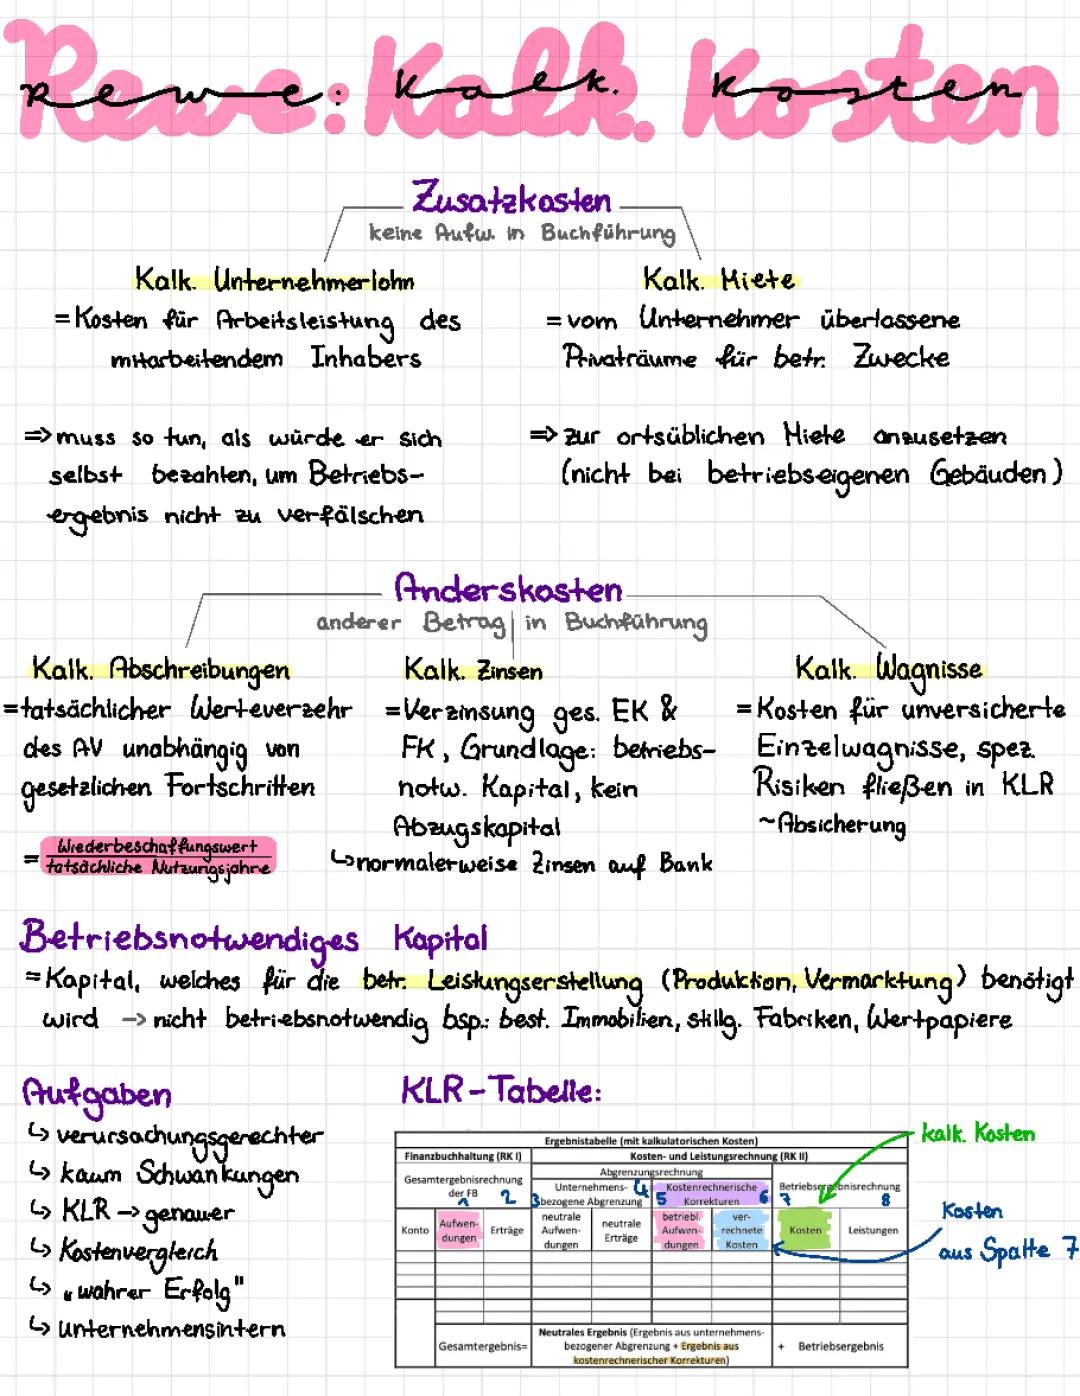 Rewe: Kalk. Kosten
Zusatzkosten
keine Aufw. in Buchführung
Kalk. Unternehmerlohn
= Kosten für Arbeitsleistung des
mitarbeitendem Inhabers
=> muss so tun, als würde er sich
selbst bezahlen, um Betriebs-
ergebnis nicht zu verfälschen
Kalk. Miete
= vom Unternehmer überlassene
Privaträume für betr. Zwecke
=> zur ortsüblichen Miete anzusetzen
(nicht bei betriebseigenen Gebäuden)
Anderskosten
anderer Betrag in Buchführung
Kalk. Abschreibungen
= tatsächlicher Werteverzehr
des AV unabhängig von
gesetzlichen Fortschritten
= Wiederbeschaffungswert
tatsächliche Nutzungsjahre
Kalk. Zinsen
= Verzinsung ges. EK &
FK, Grundlage: betriebs-
notw. Kapital, kein
Abzugskapital
↳ normalerweise Zinsen auf Bank
Kalk. Wagnisse
= Kosten für unversicherte
Einzelwagnisse, spez.
Risiken fließen in KLR
~Absicherung
Betriebsnotwendiges Kapital
= Kapital, welches für die betr. Leistungserstellung (Produktion, Vermarktung) benötigt
wird → nicht betriebsnotwendig bsp.: best. Immobilien, stillg. Fabriken, Wertpapiere
Aufgaben
↳ verursachungsgerechter
↳ kaum Schwankungen
↳ KLR → genauer
↳ Kostenvergleich
↳ "wahrer Erfolg"
↳ unternehmensintern
KLR-Tabelle:
Ergebnistabelle (mit kalkulatorischen Kosten)
Finanzbuchhaltung (RK I)
Kosten- und Leistungsrechnung (RK II)
Gesamtergebnisrechnung
der FB
1 2
Abgrenzungsrechnung
Unternehmens-
bezogene Abgrenzung
3 4
Kostenrechnerische
Korrekturen
5 6
Betriebsergebnisrechnung
7 8
Konto
Aufwen-
dungen
Erträge
neutrale
Aufwen-
dungen
neutrale
Erträge
betriebl.
Aufwen-
dungen
ver-
rechnete
Kosten
Kosten
Leistungen
Gesamtergebnis=
Neutrales Ergebnis (Ergebnis aus unternehmens-
bezogener Abgrenzung + Ergebnis aus
kostenrechnerischer Korrekturen)
+ Betriebsergebnis
kalk. Kosten
Kosten
aus Spalte 7